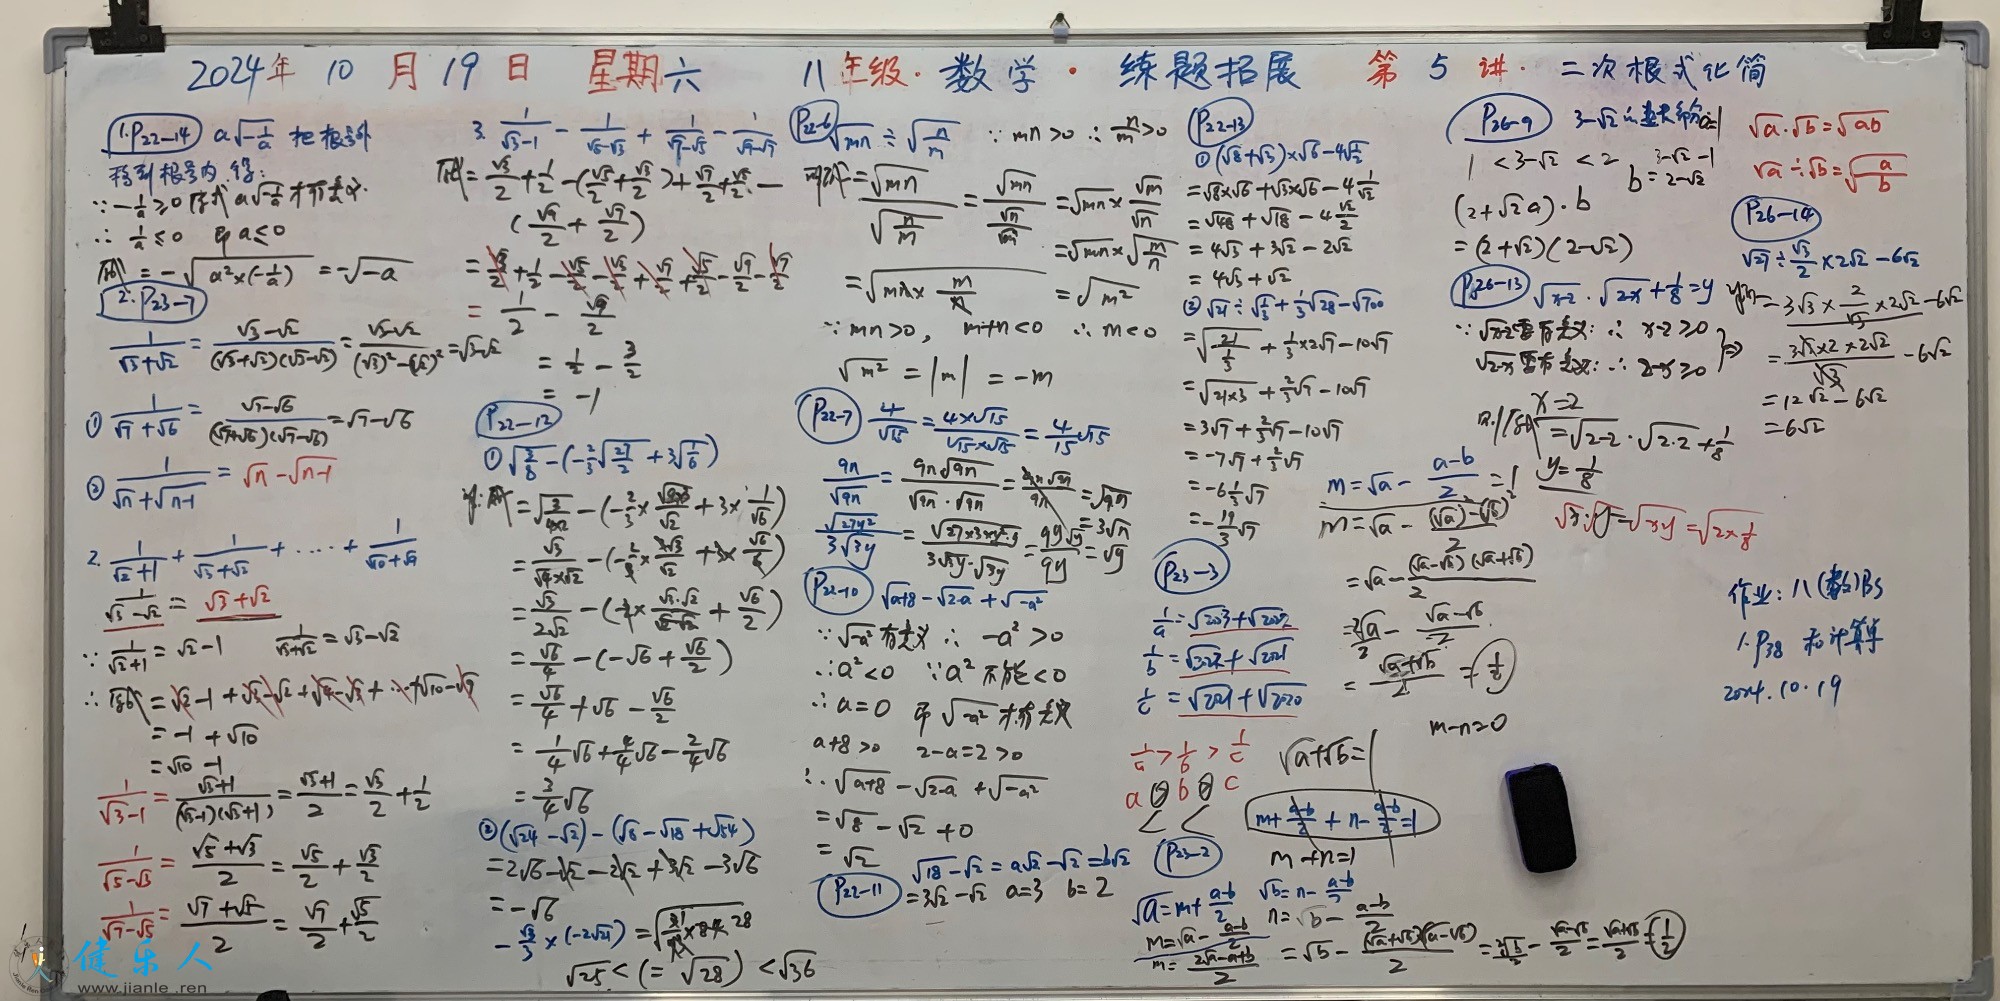 2024年 10 月 19 日 星期六 八年级·数学·练题拓展 第 5 讲· 二次根式化简
1.P22-14 a√(-1/a) 把根号外
移到根号内,得:
∵ -1/a ≥0 a√(-1/a) 才有意义.
∴ 1/a ≤0 即 a≤0
原式 = -√(a²×(-1/a)) = -√-a
2.P23-7
1/(√3+√2) = (√3-√2)/((√3+√2)(√3-√2)) = (√3-√2)/((√3)²-(√2)²) = √3-√2
① 1/(√7+√6) = (√7-√6)/((√7+√6)(√7-√6)) = √7-√6
② 1/(√n+√(n-1)) = √n-√(n-1)
2. 1/(√2+1) + 1/(√3+√2) + ···· + 1/(√10+√9)
1/(√3-√2) = √3+√2
∵ 1/(√2+1) = √2-1 1/(√3+√2) = √3-√2
∴ 原式 = √2-1+√3-√2+√4-√3+···+√10-√9
= -1+√10
= √10-1
1/(√3-1) = (√3+1)/((√3-1)(√3+1)) = (√3+1)/2 = √3/2 + 1/2
1/(√5-√3) = (√5+√3)/2 = √5/2 + √3/2
1/(√7-√5) = (√7+√5)/2 = √7/2 + √5/2
健乐人
www.jianle.ren
3. 1/(√3-1) - 1/(√5-√3) + 1/(√7-√5) - 1/(√9-√7)
原式 = √3/2 + 1/2 - (√5/2+√3/2) + √7/2 + √5/2 -
(√9/2 + √7/2)
= √3/2 + 1/2 - √5/2 - √3/2 + √7/2 + √5/2 - √9/2 - √7/2
= 1/2 - √9/2
= 1/2 - 3/2
= -1
P22-12
① √(3/8) - (-2/3√(27/2) + 3√(1/6))
= √3/(√4×√2) - (-2/3 × 3√3/√2 + 3× √6/6)
= √3/(2√2) - (-2 × (√3·√2)/(√2·√2) + √6/2)
= √6/4 - (-√6 + √6/2)
= √6/4 + √6 - √6/2
= 1/4√6 + 4/4√6 - 2/4√6
= 3/4√6
② (√24-√2) - (√8-√18+√54)
= 2√6-√2-2√2+3√2-3√6
= -√6
-√3/3 × (-2√21) = 28
√25 < (= √28) < √36
P22-6 √mn ÷ √(n/m) ∵ mn>0 ∴ n/m>0
原式 = √mn/√(n/m) = √mn/(√n/√m) = √mn × √m/√n
= √mn × √(m/n)
= √(mn × m/n) = √m²
∵ mn>0, m+n<0 ∴ m<0
√m² = |m| = -m
P22-7 4/√15 = (4×√15)/(√15×√15) = 4/15√15
9n/√9n = (9n√9n)/(√9n·√9n) = 9n√9n/9n = √9n
= 3√n
√27y²/(3√3y) = √(27×3×y²·y)/(3√3y·√3y) = 9y√y/9y = √y
P22-10 √(a+8) - √(2-a) + √(-a²)
∵ √-a² 有意义 ∴ -a²>0
∴ a²<0 ∵ a² 不能<0
∴ a=0 即 √-a² 才有意义
a+8>0 2-a=2>0
∴ √(a+8) - √(2-a) + √(-a²)
= √8-√2+0
= √2
P22-11 √18-√2 = a√2-√2 = b√2
= 3√2-√2 a=3 b=2
P22-13
① (√8+√3)×√6-4√(1/2)
= √8×√6+√3×√6-4 1/√2
= √48+√18-4 √2/2
= 4√3+3√2-2√2
= 4√3+√2
② √21÷√(1/3)+1/3√28-√700
= √(21/(1/3)) + 1/3×2√7-10√7
= √(21×3)+2/3√7-10√7
= 3√7+2/3√7-10√7
= -7√7+2/3√7
= -6 1/3√7
= -19/3√7
P23-3
1/a = √2023+√2022
1/b = √2022+√2021
1/c = √2021+√2020
1/a > 1/b > 1/c
a b c
< <
P23-2
√a = m + (a-b)/2
m = √a - (a-b)/2
m = (2√a-a+b)/2
√b = n - (a-b)/2
n = √b - (a-b)/2
= √b - (√a+√b)(√a-√b)/2 = 2√b/2 - (√a-√b)/2 = (√a+√b)/2 = 1/2
P26-9 3-√2 的整数部分a=1
1<3-√2<2, 3-√2-1
b=2-√2
(2+√2a)·b
= (2+√2)(2-√2)
P26-13 √(x-2) · √(2-x) + 1/8 = y
∵ √x-2 要有意义: ∴ x-2≥0
√2-x 要有意义: ∴ 2-x≥0 } ⇒
x=2
= √(2-2) · √(2-2) + 1/8
y = 1/8
√x·√y = √xy = √(2×1/8)
m = √a - (a-b)/2 = 1
m = √a - ((√a)²-(√b)²)/2
= √a - (√a-√b)(√a+√b)/2
= 2√a/2 - (√a-√b)/2
= (√a+√b)/2 = 1/2
m-n=0
√a+√b=1
m + (a-b)/2 + n - (a-b)/2 = 1
m+n=1
√a·√b=√ab
√a÷√b=√(a/b)
P26-14
√27 ÷ √3/2 × 2√2 - 6√2
= 3√3 × 2/√3 × 2√2 - 6√2
= (3√3×2×2√2)/√3 - 6√2
= 12√2-6√2
= 6√2
作业: 八(数)BS
1.P38 和计算单
2024.10.19